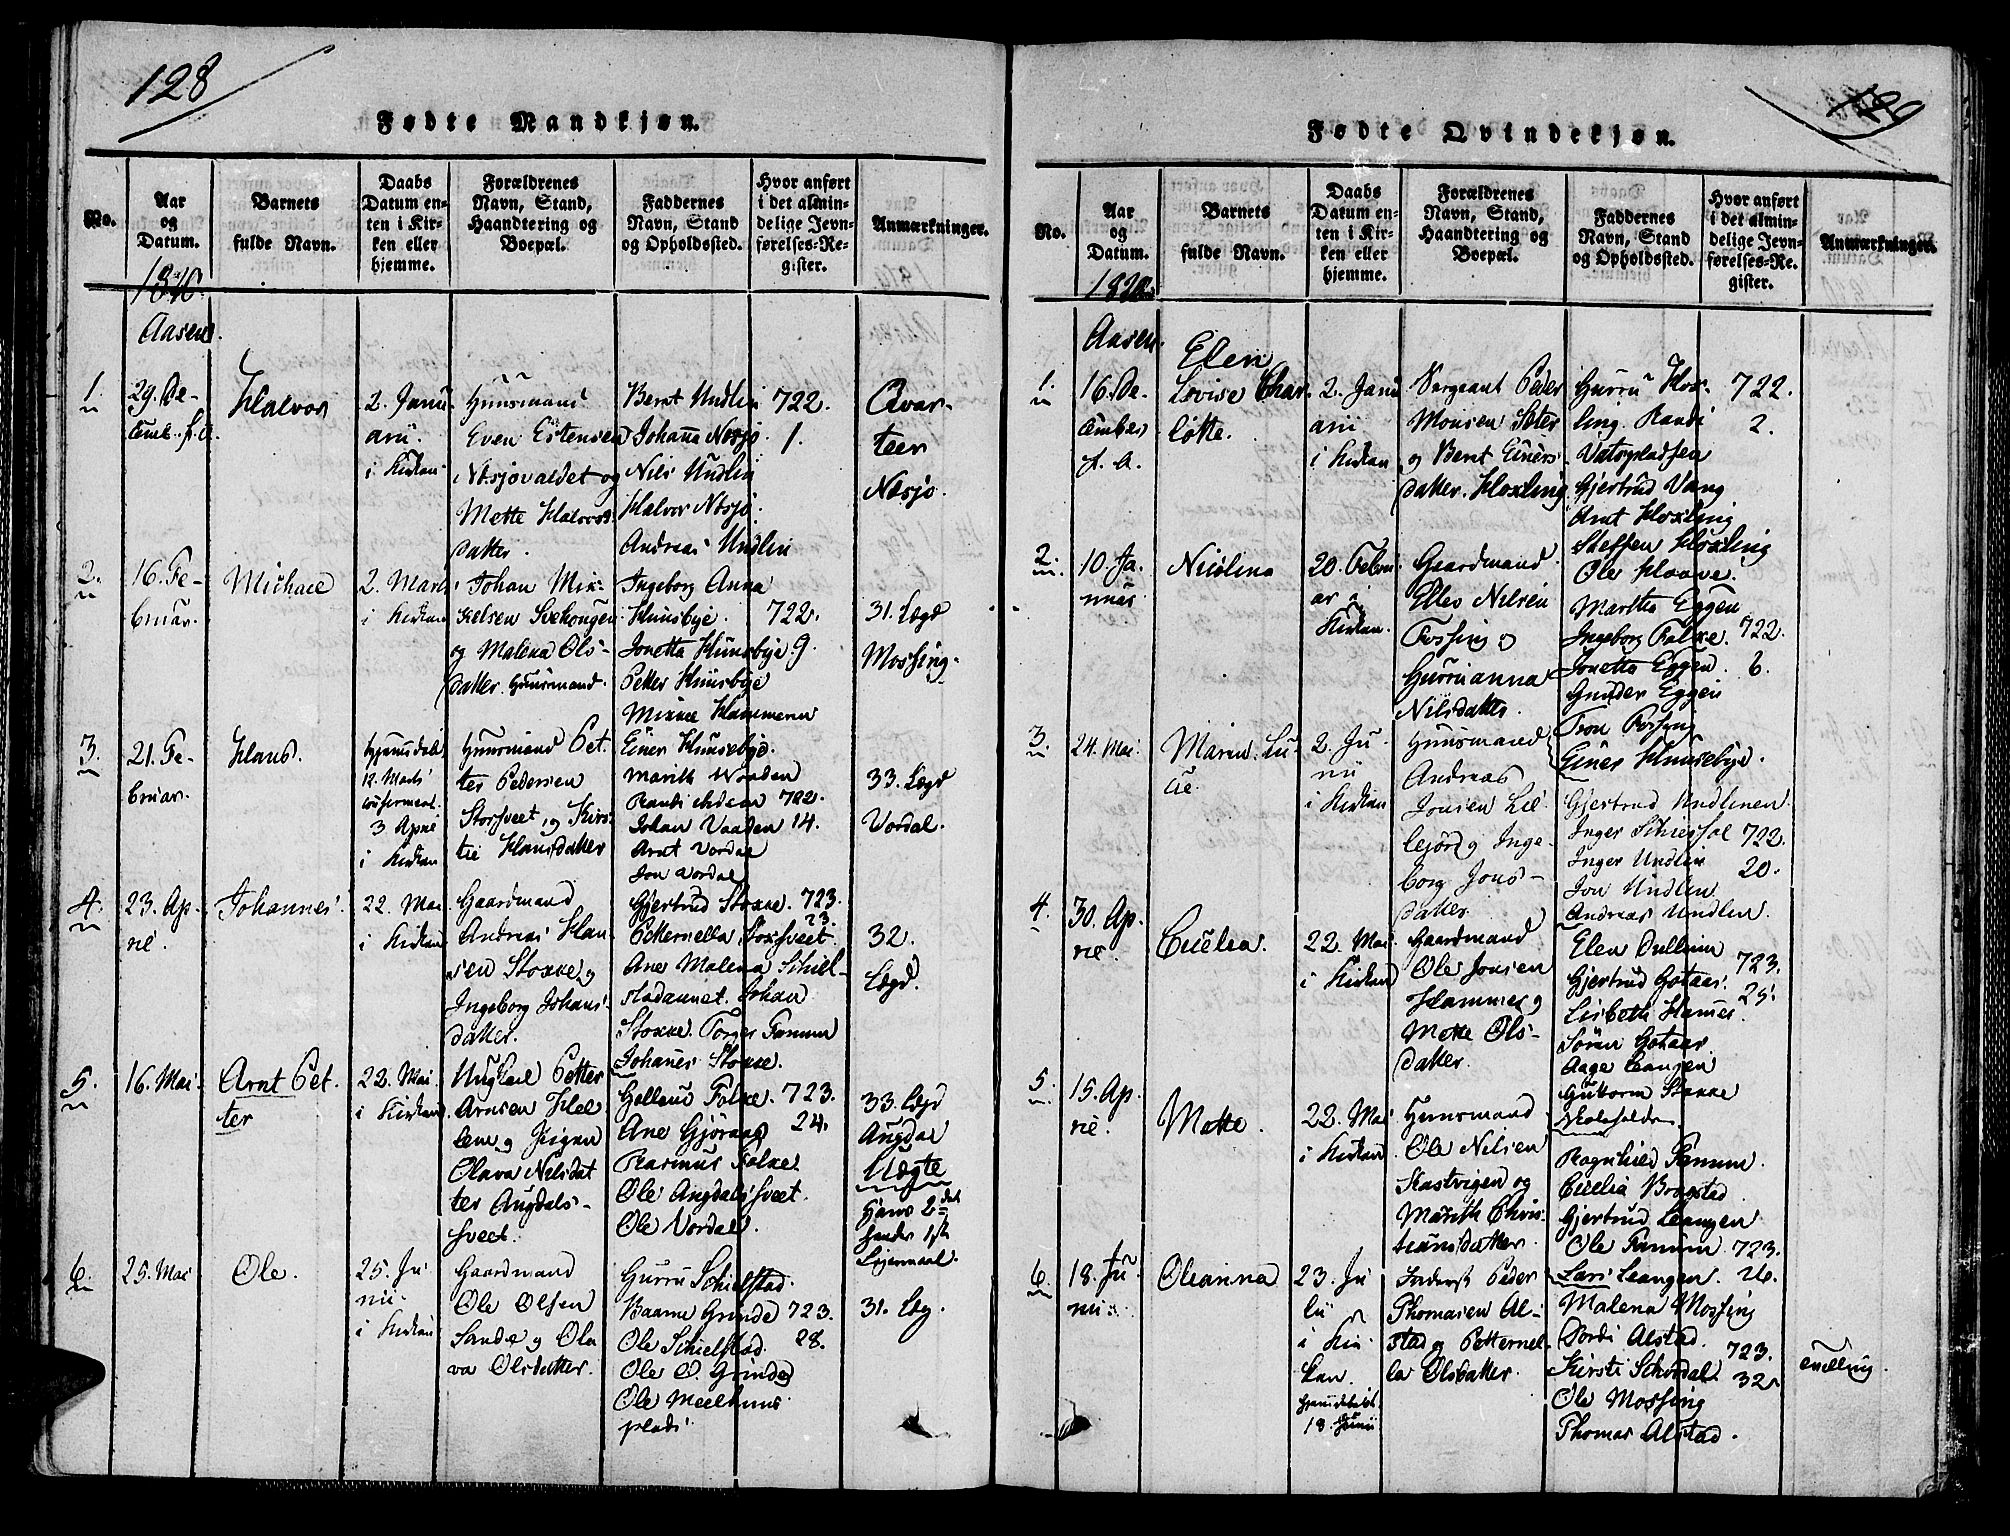 128
Fødte Mandkjøn.
No.
Aar
og
Datum.
Barnets
fulde Navn.
Daabs
Datum en-
ten i Kir-
ken eller
hjemme.
Forældrenes
Navn, Stand,
Haandtering og
Boepæl.
Faddernes
Navn, Stand
og Opholdssted.
Hvor anført
i det almin-
delige Jevn-
førelses-Re-
gister.
Anmærkninger.
1820.
Aasen.
1.
29. De-
cemb. f. A.
Halvor
2. Janu-
arii.
i Kirken
Huusmand
Even Estensen
Nosjovaldet og
Mette Halvors-
datter.
Beret Undlin
Johanna Nosjo.
Nils Undlin
Halvor Nosjo.
Andreas Undlin
722.
1.
Qvar-
teer
Nosjo.
2.
16. Fe-
bruar.
Michael
2. Marti
i Kirken
Johan Mik-
kelsen
og Malena Ols-
datter. Huusmand.
Ingeborg Anna
Huusbye.
Jonetta Huusbye
Petter Huusbye
Mikkel Hammeren
722.
9.
31. Lægd
Mossing.
3.
21. Fe-
bruar.
Hans.
hjemmedøbt
12. Marts
confirmeret
3 April
i Kirken
Huusmand Pet-
ter Pedersen
Storsveet og Kirs-
tie Hansdatter
Einer Huusebye.
Marith Vordden
Randi
Johan Vaaden
Arnt Vordal
Jon Vordal
722.
14.
33. Lægd
Vordal.
4.
23. Ap-
ril.
Johannes
22. Mai
i Kirken
Gaardmand
Andreas Han-
sen Stokke og
Ingeborg Johans-
datter.
Gjertrud Stokke.
Petternella Stoxsveet
Ane Malena Schiel-
stadaunet. Johan
Stokke. Torger Fammen
Johanes Stokke.
723.
23.
32.
Lægd.
5.
16. Mai
Arnt Pet-
ter
22. Mai
i Kirken
Ungkarl Petter
Arnsen Hel-
lem og Pigen
Olava Nilsdat-
ter Augdals-
sveet.
Gollaug Falke.
Ane Gjøraas
Rasmus Falke
Ole Augdalssveet.
Ole Vordal.
723.
24.
33. Lægd
Augdal
Uægte
Hans 2det
hendes 1ste
Leiermaal.
6.
25. Mai
Ole.
25. Ju-
nii.
i Kirken
Gaardmand
Ole Olsen
Sande og Ola-
va Olsdatter.
Gurru Schielstad.
Baarne Grinde
Ole Schielstad.
Ole O. Grinde
Ole Meelhuus-
plads
723.
28.
31. Lægd
Fødte Qvindekjøn.
No.
Aar
og
Datum.
Barnets
fulde Navn.
Daabs
Datum en-
ten i Kir-
ken eller
hjemme.
Forældrenes
Navn, Stand,
Haandtering og
Boepæl.
Faddernes
Navn, Stand
og Opholdssted.
Hvor anført
i det almin-
delige Jevn-
førelses-Re-
gister.
Anmærkninger.
1820.
Aasen.
1.
16. De-
cember
f. A.
Elen
Lovise Char-
lotte.
2. Janu-
arii
i Kirken
Sergeant Peder
Monsen Seter
og Beret Einers-
datter. Hoxling
Gurru Hox-
ling. Randi
Vatogladsen
Gjertrud Vang
Arnt Hoxling
Steffen Hoxling
722.
2.
2.
10. Ja-
nuar
Nicolina
20. Febru-
ar i
Kirken.
Gaardmand
Elles Nilsen
Fossing og
Gurruanna
Nilsdatter.
Ole Haave.
Martha Eggen
Ingeborg Falke.
Jonetta Eggen.
Gunder Eggen
Tron Fossing
722.
6.
3.
24. Mai
Maren Lu-
cie.
2. Ju-
nii
i Kirken
Huusmand
Andreas
Jonsen Lil-
lejord og Inge-
borg Jons-
datter.
Einer Huusebye.
Gjertrud Undlinen
Inger Schiersol
Inger Undlin
Jon Undlin
Andreas Undlin.
722.
20.
4.
30. Ap-
ril.
Cicelia.
22. Mai
i Kirken
Gaardmand
Ole Jonsen
Hammer og
Mette Ols-
datter.
Elen Dullum
Gjertrud Gotaas.
Lisbeth Hamer.
Sören Gotaas
Aage Leangen
723.
25.
5.
15. Ap-
ril.
Mette.
22. Mai
i Kirken
Huusmand
Ole Nilsen
Kastvigen og
Marith Chris-
tiansdatter.
Guttorm Stokke
Ragnhild Fammen.
Cicelia Bragstad.
Gjertrud Leangen
Ole Fammen
Lars Leangen.
723.
26.
6.
18. Ju-
nii.
Oleanna
23. Ju-
lii
i Kir-
ken.
hjemmedøbt
18. Junii
Inderst Peder
Thomasen Al-
stad og Petternel-
la Olsdatter.
Malena Mossing
Dordi Alstad.
Kirsti Schordal.
Ole Mossing
Thomas Alstad.
723.
32.
Tvilling.